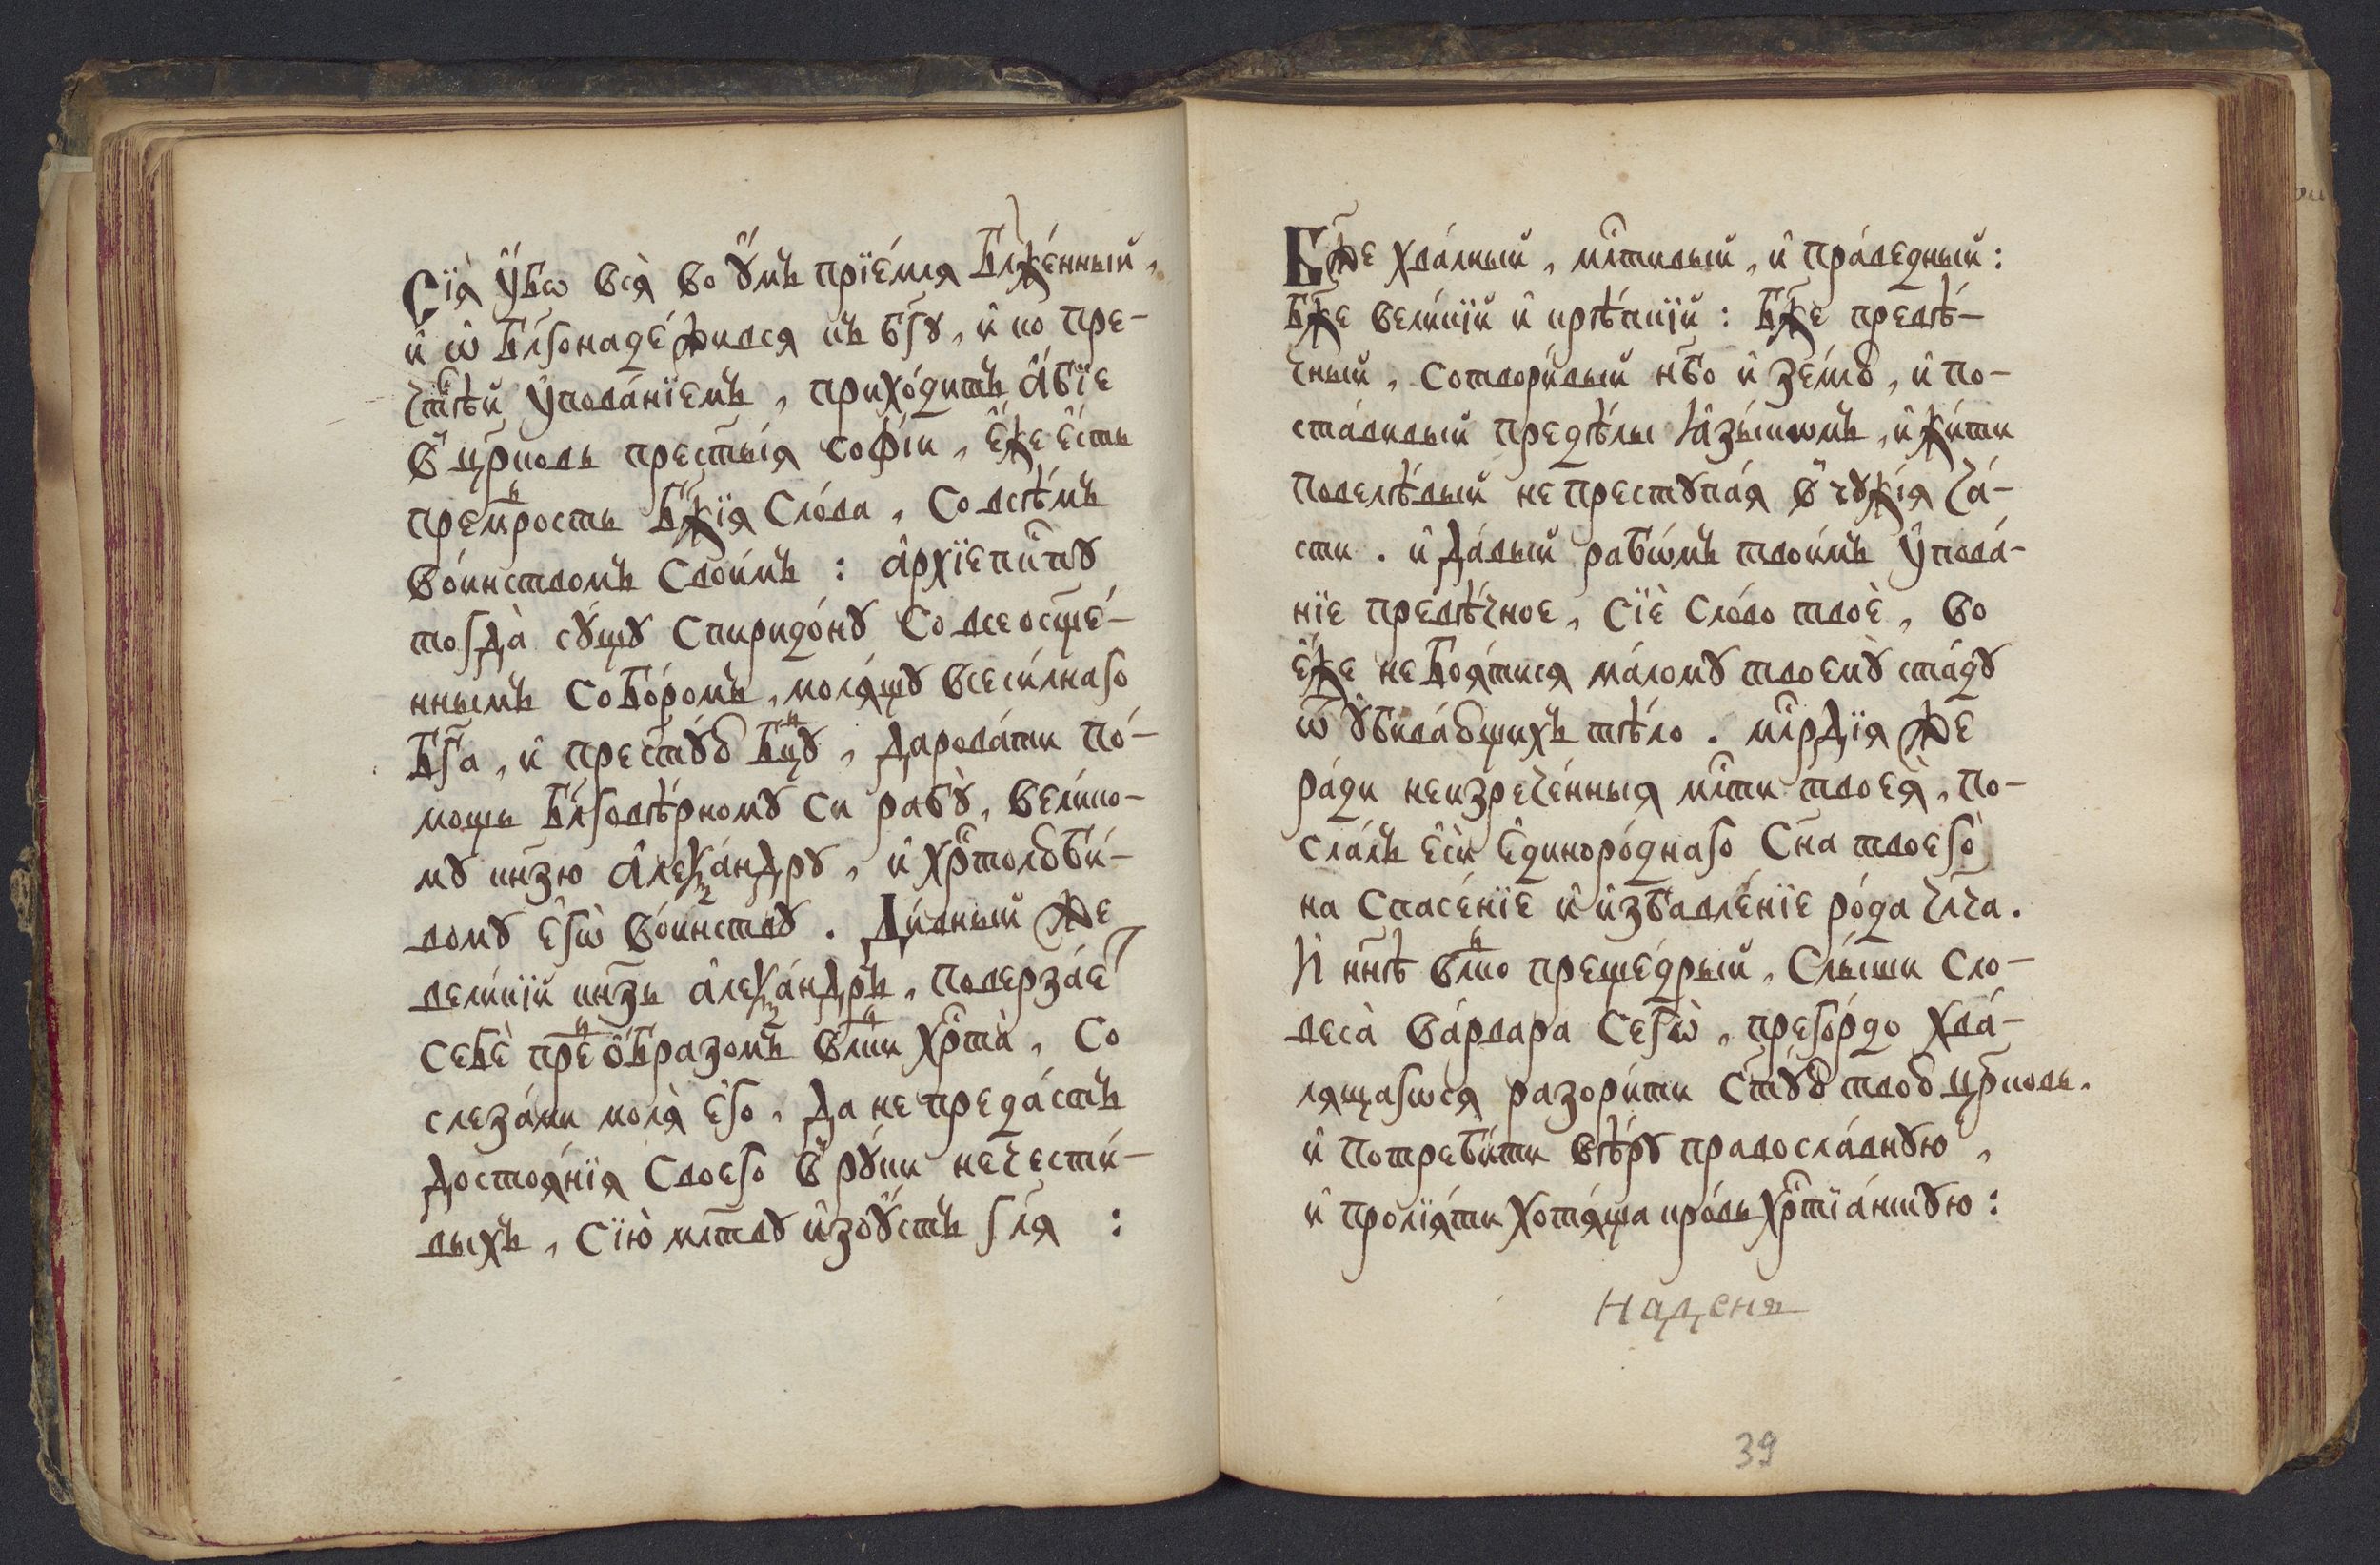 Сїѧ̀ ᲂу҆́бѡ всѧ̀ во ᲂу҆́мъ прїе́млѧ Бл҃же́нный,
и҆ ѡ҆ Бл҃гонаде́жився къ бг҃ꙋ, и҆ ко пре-
чⷭ҇тѣй ᲂу҆пова́нїемъ, прихо́дитъ а҆́бїе
в̾ цр҃ковь прест҃ы́ѧ софі́и, є҆́же є҆́сть
премⷣрость Бж҃їѧ Сло́ва, Со всѣ́мъ
во́инствомъ Свои́мъ : а҆рхїепⷭ҇пꙋ
тогда̀ сꙋ́щꙋ Спиридо́нꙋ Со всеосщ҃е́-
ннымъ Собо́ромъ, молѧ́щꙋ всеси́лнаго
Бг҃а, и҆ прест҃ꙋ́ю Бцⷣꙋ, дарова́ти по́-
мощь Бл҃говѣ́рномꙋ си рабꙋ̀, вели́ко-
мꙋ кн҃зю а҆леѯа́ндрꙋ, и҆ хрⷭ҇толюби́-
вомꙋ є҆гѡ̀ во́инствꙋ . Ди́вный же
вели́кїй кн҃зь а҆леѯа́ндръ, повер́зает
себѐ преⷣ ѻ҆́бразомъ влⷣки хрⷭ҇та̀, Со
слеза́ми молѧ̀ є҆го, да не преда́стъ
достоѧ́нїѧ Своего в̾ рꙋ́ки нечести́-
выхъ, Сїю̀ мл҃твꙋ и҆зоу҆́стъ гл҃ѧ :
Бж҃е хва́лный, млⷭ҇тивый, и҆ пра́ведный :
Бж҃е вели́кїй и҆ крѣ́пкїй : Бж҃е превѣ́-
чный, сотвори́вый нб҃о и҆ зе́млю, и҆ по-
ста́вивый предѣ́лы ꙗ҆зы́кѡмъ, и҆ жи́ти
повелѣ́вый не престꙋпа́ѧ в̾ чꙋжі́ѧ ча́-
сти . и҆ да́вый рабѡ́мъ твои́мъ ᲂу҆пова́-
нїе превѣ́чное, Сїѐ Сло́во твоѐ, во
є҆́же не боѧ́тисѧ ма́ломꙋ твоемꙋ̀ ста́дꙋ
ѿ ᲂу҆бива́ющихъ тѣ́ло . млⷭ҇рдїѧ же
ра́ди неизрече́нныѧ млⷭ҇ти твоеѧ̀, по-
сла́лъ є҆сѝ Є҆диноро́днаго Сн҃а твоего̀
на Спасе́нїе и҆ и҆збавле́нїе ро́да чл҃ча.
И҆ нн҃ѣ влⷣко прещедрый, Слы́ши сло-
веса̀ ва́рвара Сегѡ̀, прего́рдо хва́-
лѧщагѡсѧ разори́ти ст҃ꙋ́ю твою цр҃ковь.
и҆ потреби́ти вѣ́рꙋ правосла́внꙋю,
и҆ пролїѧ́ти хотѧ́ща кро́вь хрⷭ҇тїа́нскꙋю :
39